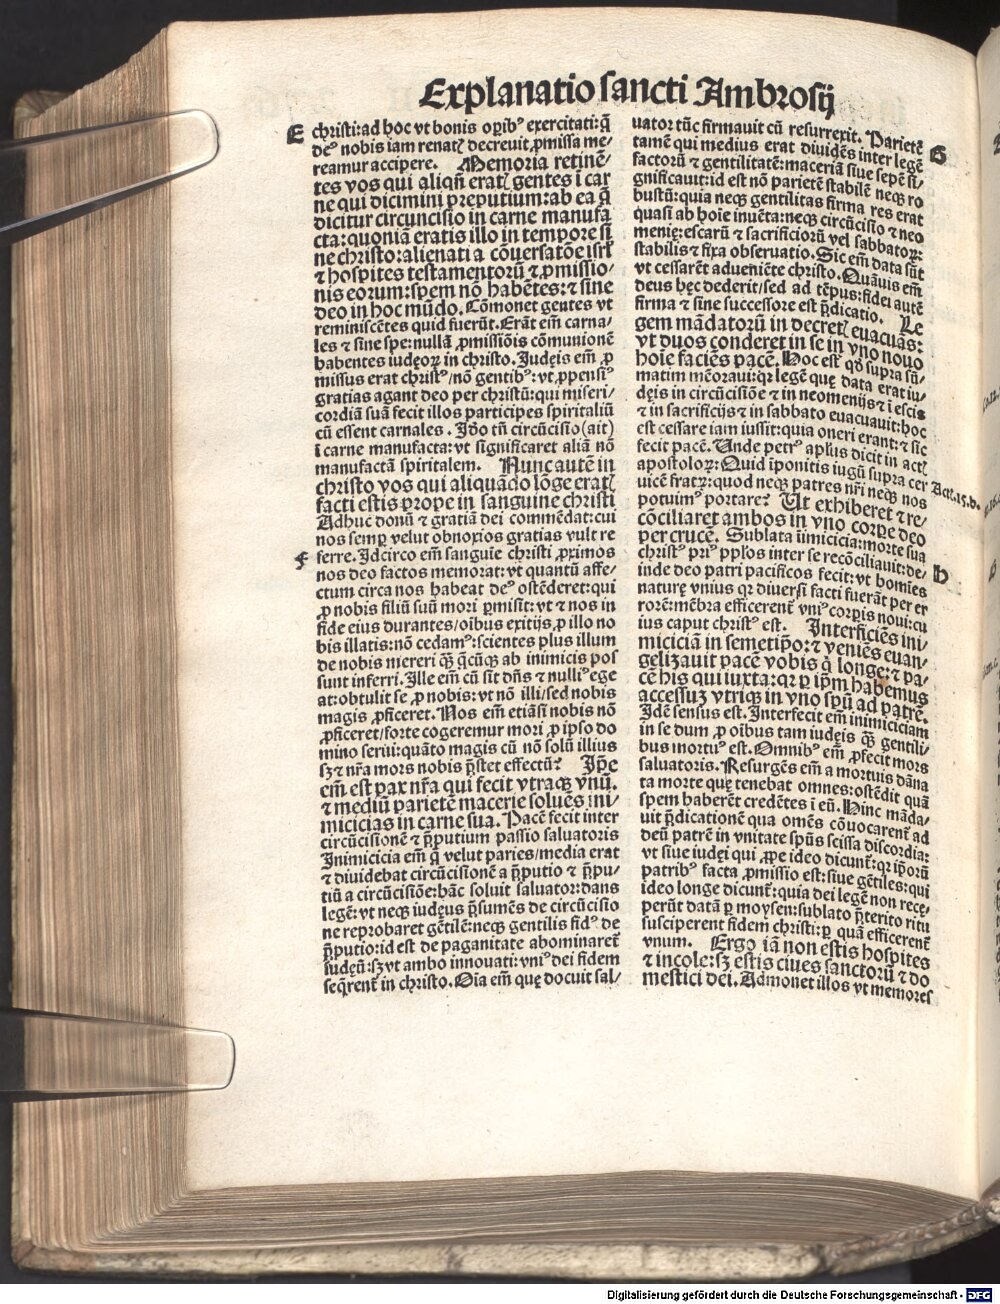 Explanatio sancti Ambrosij
E
christi:ad hoc vt bonis oꝑibꝰ exercitati:q̄
deꝰ nobis iam renatꝭ decreuit ꝓmissa me-
reamur accipere. Memoria retinē-
tes vos qui aliqn̄ eratꝭ gentes ī car
ne qui dicimini preputium:ab ea q̄
dicitur circuncisio in carne manufa
cta:quoniā eratis illo in tempore si
ne christo:alienati a cōuersatōe isrl̓
⁊ hospites testamentorū ⁊ ꝓmissio/
nis eorum:spem nō habētes:⁊ sine
deo in hoc mūdo. Cōmonet gentes vt
reminiscētes quid fuerūt. Erāt em̄ carna/
les ⁊ sine spe:nullā ꝓmissiōis cōmunionē
habentes iudęoꝝ in christo. Iudęis em̄ ꝓ
missus erat christꝰ/nō gentibꝰ:vt ꝓpensiꝰ
gratias agant deo per christū:qui miseri/
cordiā suā fecit illos participes spiritaliū
cū essent carnales. Iđo tn̄ circūcisio(ait)
ī carne manufacta:vt significaret aliā nō
manufactā spiritalem. Nunc autē in
christo vos qui aliquādo lōge eratꝭ
facti estis prope in sanguine christi
Adhuc donū ⁊ gratiā dei commēdat:cui
nos semꝑ velut obnoxios gratias vult re
F
ferre. Idcirco em̄ sanguīe christi ꝓximos
nos deo factos memorat:vt quantū affe-
ctum circa nos habeat deꝰ ostēderet:qui
ꝓ nobis filiū suū mori ꝑmisit:vt ⁊ nos in
fide eius durantes/oībus exitijs ꝓ illo no
bis illatis:nō cedamꝰ:scientes plus illum
de nobis mereri qꝫ̄ q̄cūqꝫ ab inimicis pos
sunt inferri. Ille em̄ cū sit dn̄s ⁊ nulliꝰ ege
at:obtulit se ꝓ nobis:vt nō illi/sed nobis
magis ꝓficeret. Nos em̄ etiāsi nobis nō
ꝓficeret/forte cogeremur mori ꝓ ipso do
mino serui:quāto magis cū nō solū illius
sꝫ ⁊ nr̄a mors nobis p̄stet effectū? Ip̄e
em̄ est pax nr̄a qui fecit vtraqꝫ vnū.
⁊ mediū parietē macerie soluēs īni/
micicias in carne sua. Pacē fecit inter
circūcisionē ⁊ p̄putium passio saluatoris
Inimicicia em̄ q̄ velut paries/media erat
⁊ diuidebat circūcisionē a p̄putio ⁊ p̄pu-
tiū a circūcisiōe:hāc soluit saluator:dans
legē:vt neqꝫ iudęus p̄sumēs de circūcisio
ne reprobaret gētilē:neqꝫ gentilis fidꝰ de
p̄putio:id est de paganitate abominaret̄
iudęū:sꝫ vt ambo innouati:vniꝰ dei fidem
seq̄rent̄ in christo. Oīa em̄ quę docuit sal/
uator tūc firmauit cū resurrexit. Parietē
G
tamē qui medius erat diuidēs inter legē
factorū ⁊ gentilitatē:maceriā siue sepē si/
gnificauit:id est nō parietē stabilē neqꝫ ro
bustū:quia neqꝫ gentilitas firma res erat
quasi ab hoīe inuēta:neqꝫ circūcisio ⁊ neo
menię:escarū ⁊ sacrificiorū vel sabbatoꝝ:
stabilis ⁊ fixa obseruatio. Sic em̄ data sūt
vt cessarēt adueniēte christo. Quāuis em̄
deus hęc dederit/sed ad tēpus:fidei autē
firma ⁊ sine successore est p̄dicatio. Le
gem mādatorū in decretꝭ euacuās:
vt duos conderet in se in vno nouo
hoīe faciēs pacē. Hoc est qđ supra sū/
matim mēoraui:qꝛ legē quę data erat iu/
dęis in circūcisiōe ⁊ in neomenijs ⁊ ī escis
⁊ in sacrificijs ⁊ in sabbato euacuauit:hoc
est cessare iam iussit:quia oneri erant:⁊ sic
fecit pacē. Unde petrꝰ apl̓us dicit in actꝭ
apostoloꝝ:Quid īponitis iugū supra cer
Act.15.b.
uicē fratꝝ:quod neqꝫ patres nr̄i neqꝫ nos
potuimꝰ portare? Ut exhiberet ⁊ re/
cōciliaret ambos in vno corpe deo
per crucē. Sublata īimicicia:morte sua
christꝰ priꝰ ppl̓os inter se recōciliauit:de/
H
inde deo patri pacificos fecit:vt hoīes
naturę vnius qꝛ diuersi facti fuerāt per er
rorē:mēbra efficerent̄ vniꝰ corꝑis noui:cu
ius caput christꝰ est. Interficiēs ini/
miciciā in semetip̄o:⁊ veniēs euan/
gelizauit pacē vobis q̇ longe:⁊ pa/
cē his qui iuxta:qꝛ ꝑ ip̄m habemus
accessuꝫ vtriqꝫ in vno spū ad patrē.
Idē sensus est. Interfecit em̄ inimiciciam
in se dum ꝓ oībus tam iudęis qꝫ̄ gentili/
bus mortuꝰ est. Omnibꝰ em̄ ꝓfecit mors
saluatoris. Resurgēs em̄ a mortuis dāna
ta morte quę tenebat omnes:ostēdit quā
spem haberēt credētes ī eū. Hinc māda/
uit p̄dicationē qua omēs cōuocarent̄ ad
deū patrē in vnitate spūs scissa discordia:
vt siue iudęi qui ꝓpe ideo dicunt̄:qꝛ ip̄orū
patribꝰ facta ꝓmissio est:siue gētiles:qui
ideo longe dicunt̄:quia dei legē non rece/
perūt datā ꝑ moysen:sublato p̄terito ritu
susciperent fidem christi:ꝑ quā efficerent̄
vnum. Ergo iā non estis hospites
⁊ incole:sꝫ estis ciues sanctorū ⁊ do
mestici dei. Admonet illos vt memores
Digitalisierung gefördert durch die Deutsche Forschungsgemeinschaft - DFG